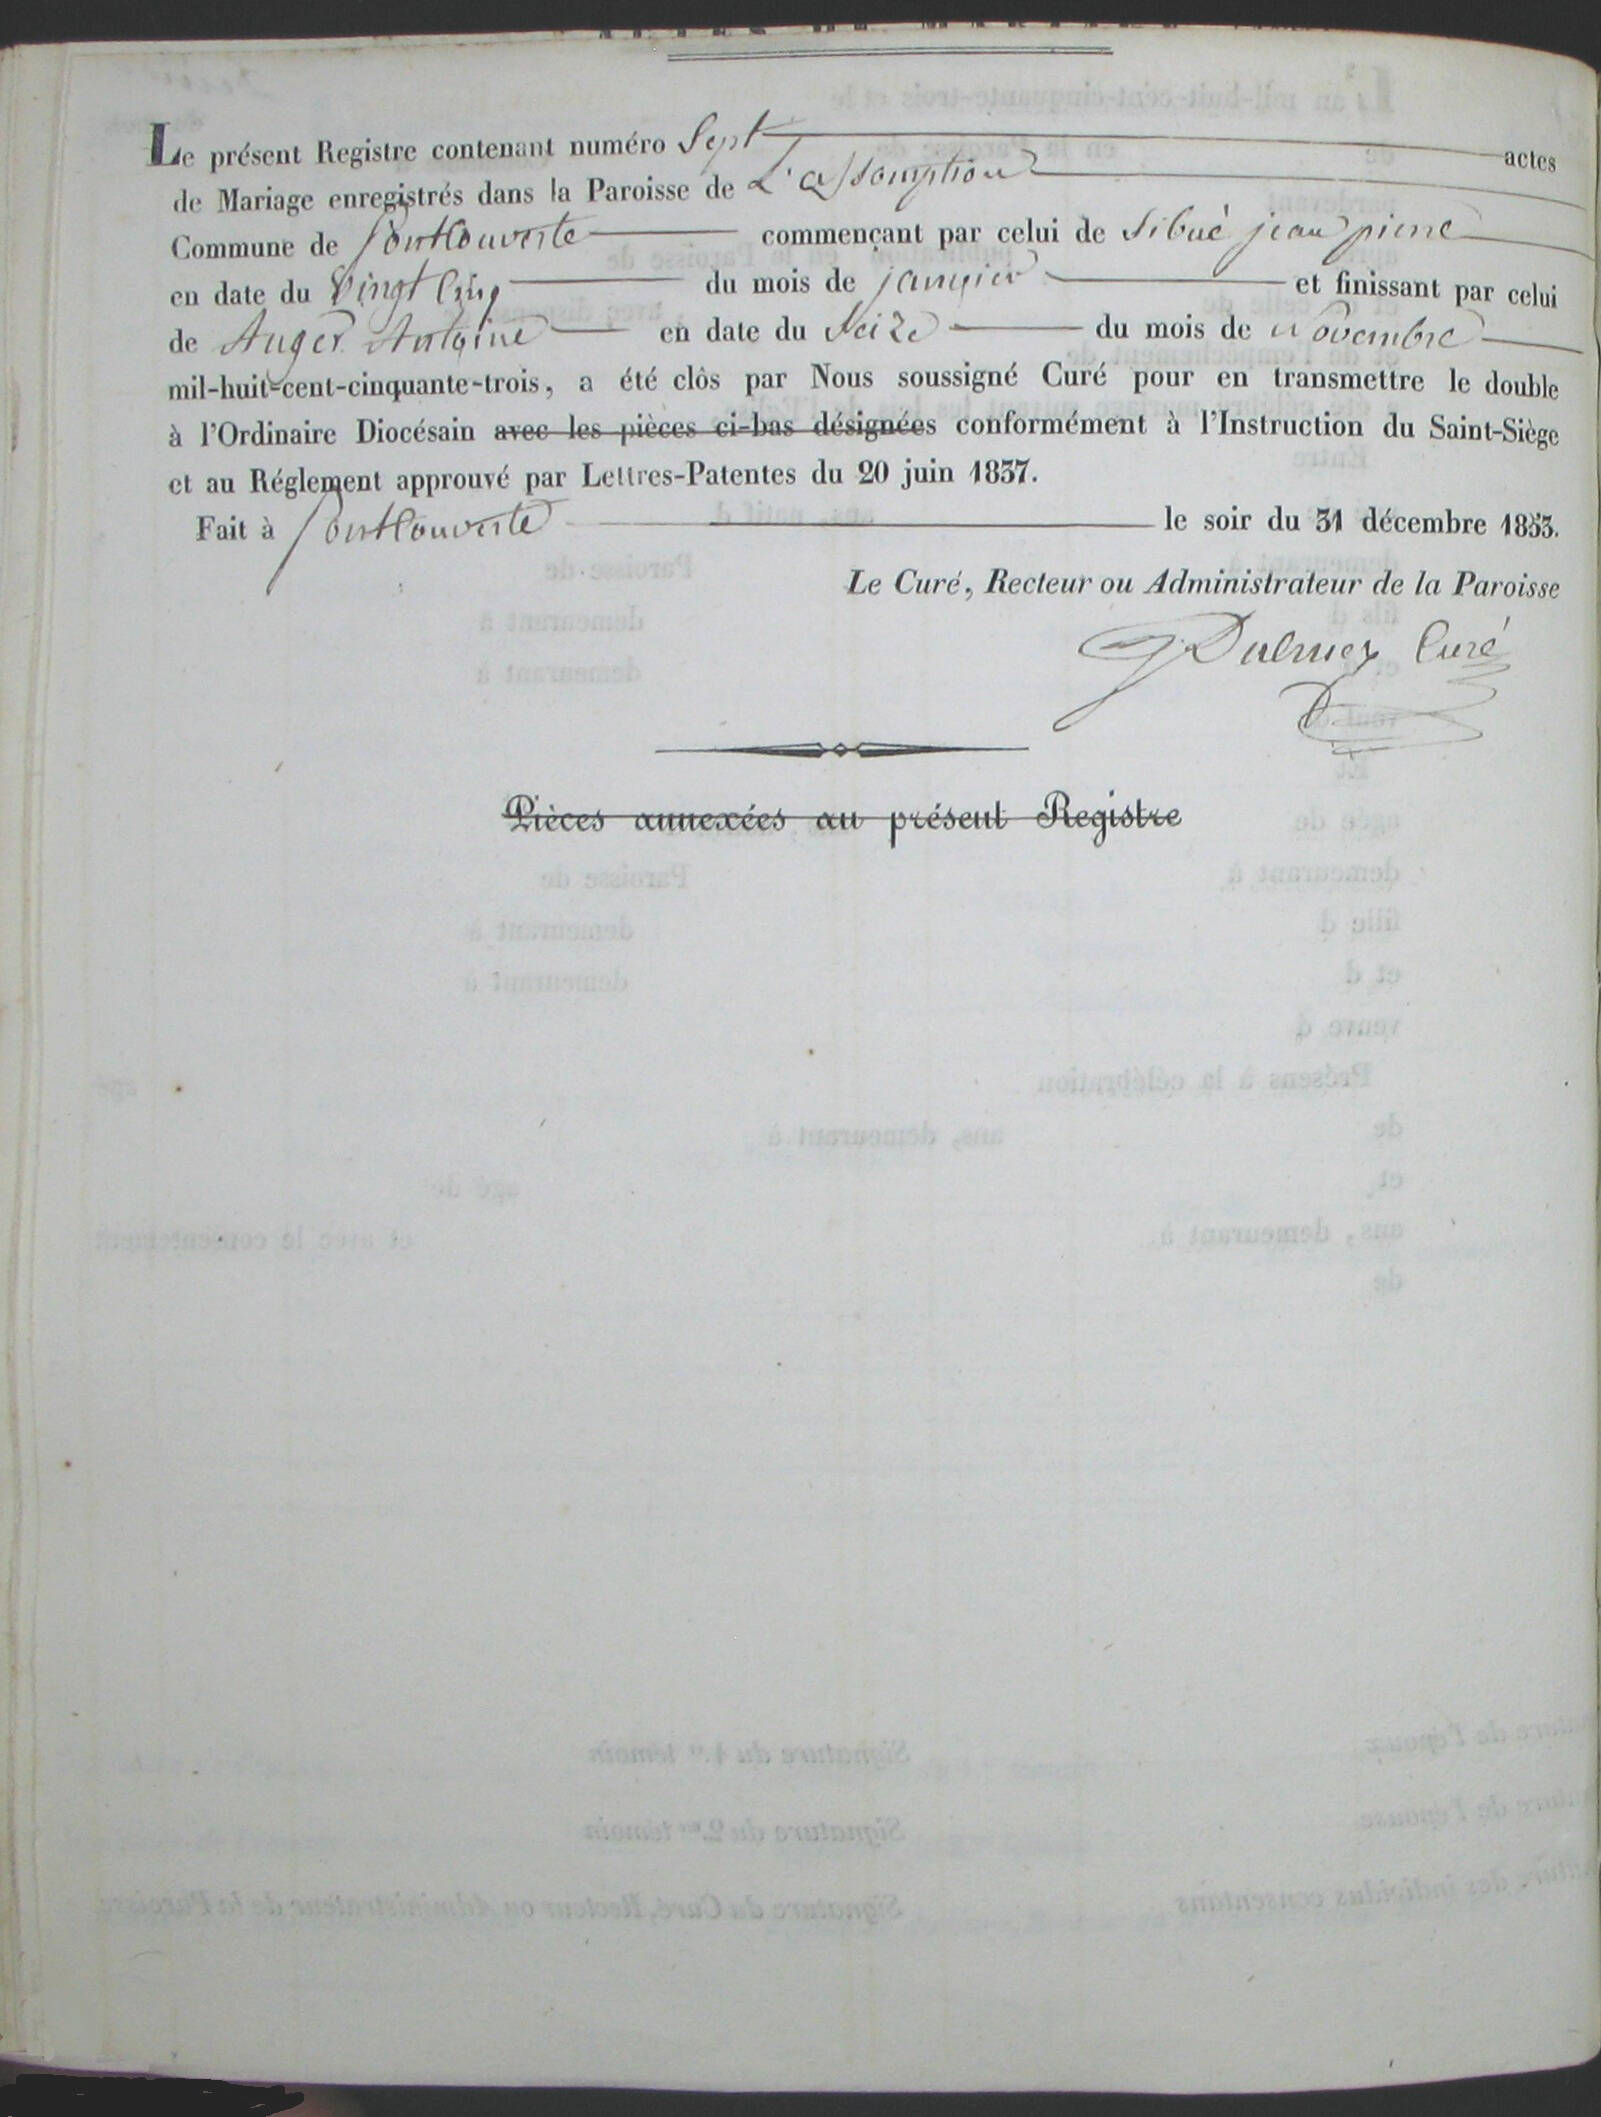 Le présent Registre contenant numéro Sept actes
de Mariage enregistrés dans la Paroisse de L'assomption
Commune de fontCouverte commençant par celui de Sibué jean pierre
en date du Vingt Cinq du mois de janvier et finissant par celui
de Auger Antoine en date du Seize du mois de Novembre
mil-huit-cent-cinquante-trois, a été clôs par Nous soussigné Curé pour en transmettre le double
à l'Ordinaire Diocésain avec les pièces ci-bas désignées conformément à l'Instruction du Saint-Siège
et au Réglement approuvé par Lettres-Patentes du 20 juin 1837.
Fait à fontCouverte le soir du 31 décembre 1853.
Le Curé, Recteur ou Administrateur de la Paroisse
Curé
Pièces annexées au présent Registre